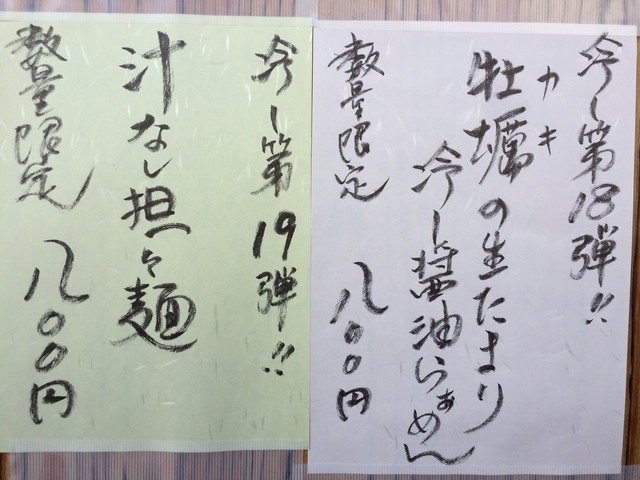 冷し第18弾!!
牡蠣の生たまり
カキ
冷し醤油らぁめん
数量限定
八〇〇円
冷し第19弾!!
汁なし担々麺
数量限定
八〇〇円